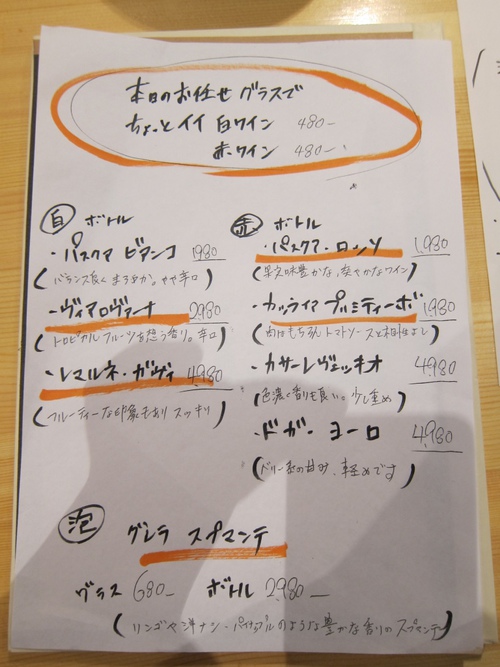 本日のお任せ グラスで
ちょっとイイ 白ワイン 480-
赤ワイン 480-
白 ボトル
・パスクア ビアンコ 1,980
(バランス良く まろやか。やや辛口)
・ヴィアロヴァーナ 2,980
(トロピカルフルーツを想う香り。辛口)
・レマルネ・ガヴィ 4,980
(フルーティーな印象もあり スッキリ)
赤 ボトル
・パスクア・ロッソ 1,980
(果実味豊かな、爽やかなワイン)
・カッライア プリミティーボ 1,980
(肉はもちろん トマトソースと相性よし)
・カサーレヴェッキオ 4,980
(色濃く香りも良い。少し重め)
・ドガ・ヨーロ 4,980
(ベリー系の甘み、軽めです)
泡 グレラ スプマンテ
グラス 680- ボトル 2,980-
(リンゴや洋ナシ・パイナップルのような豊かな香りのスプマンテ)